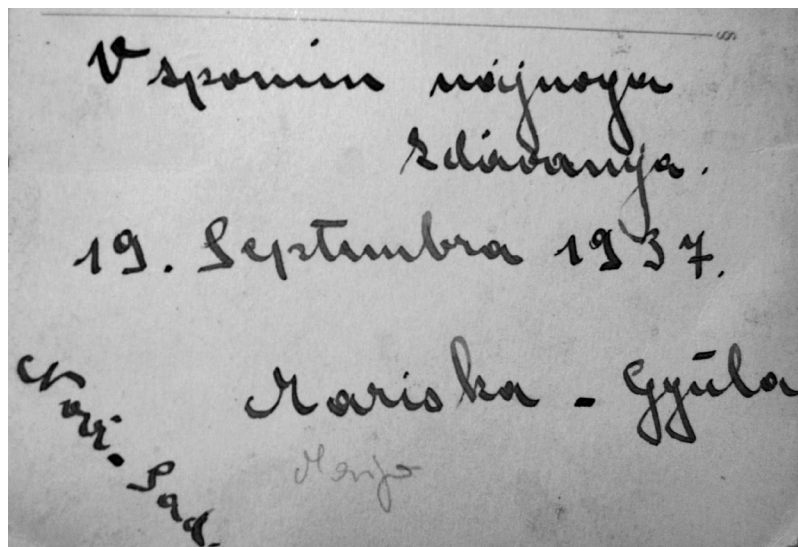 V spomin nájnoga
zdávanya.
19. Septembra 1937.
Mariska - Gyūla
Novi-Sad.